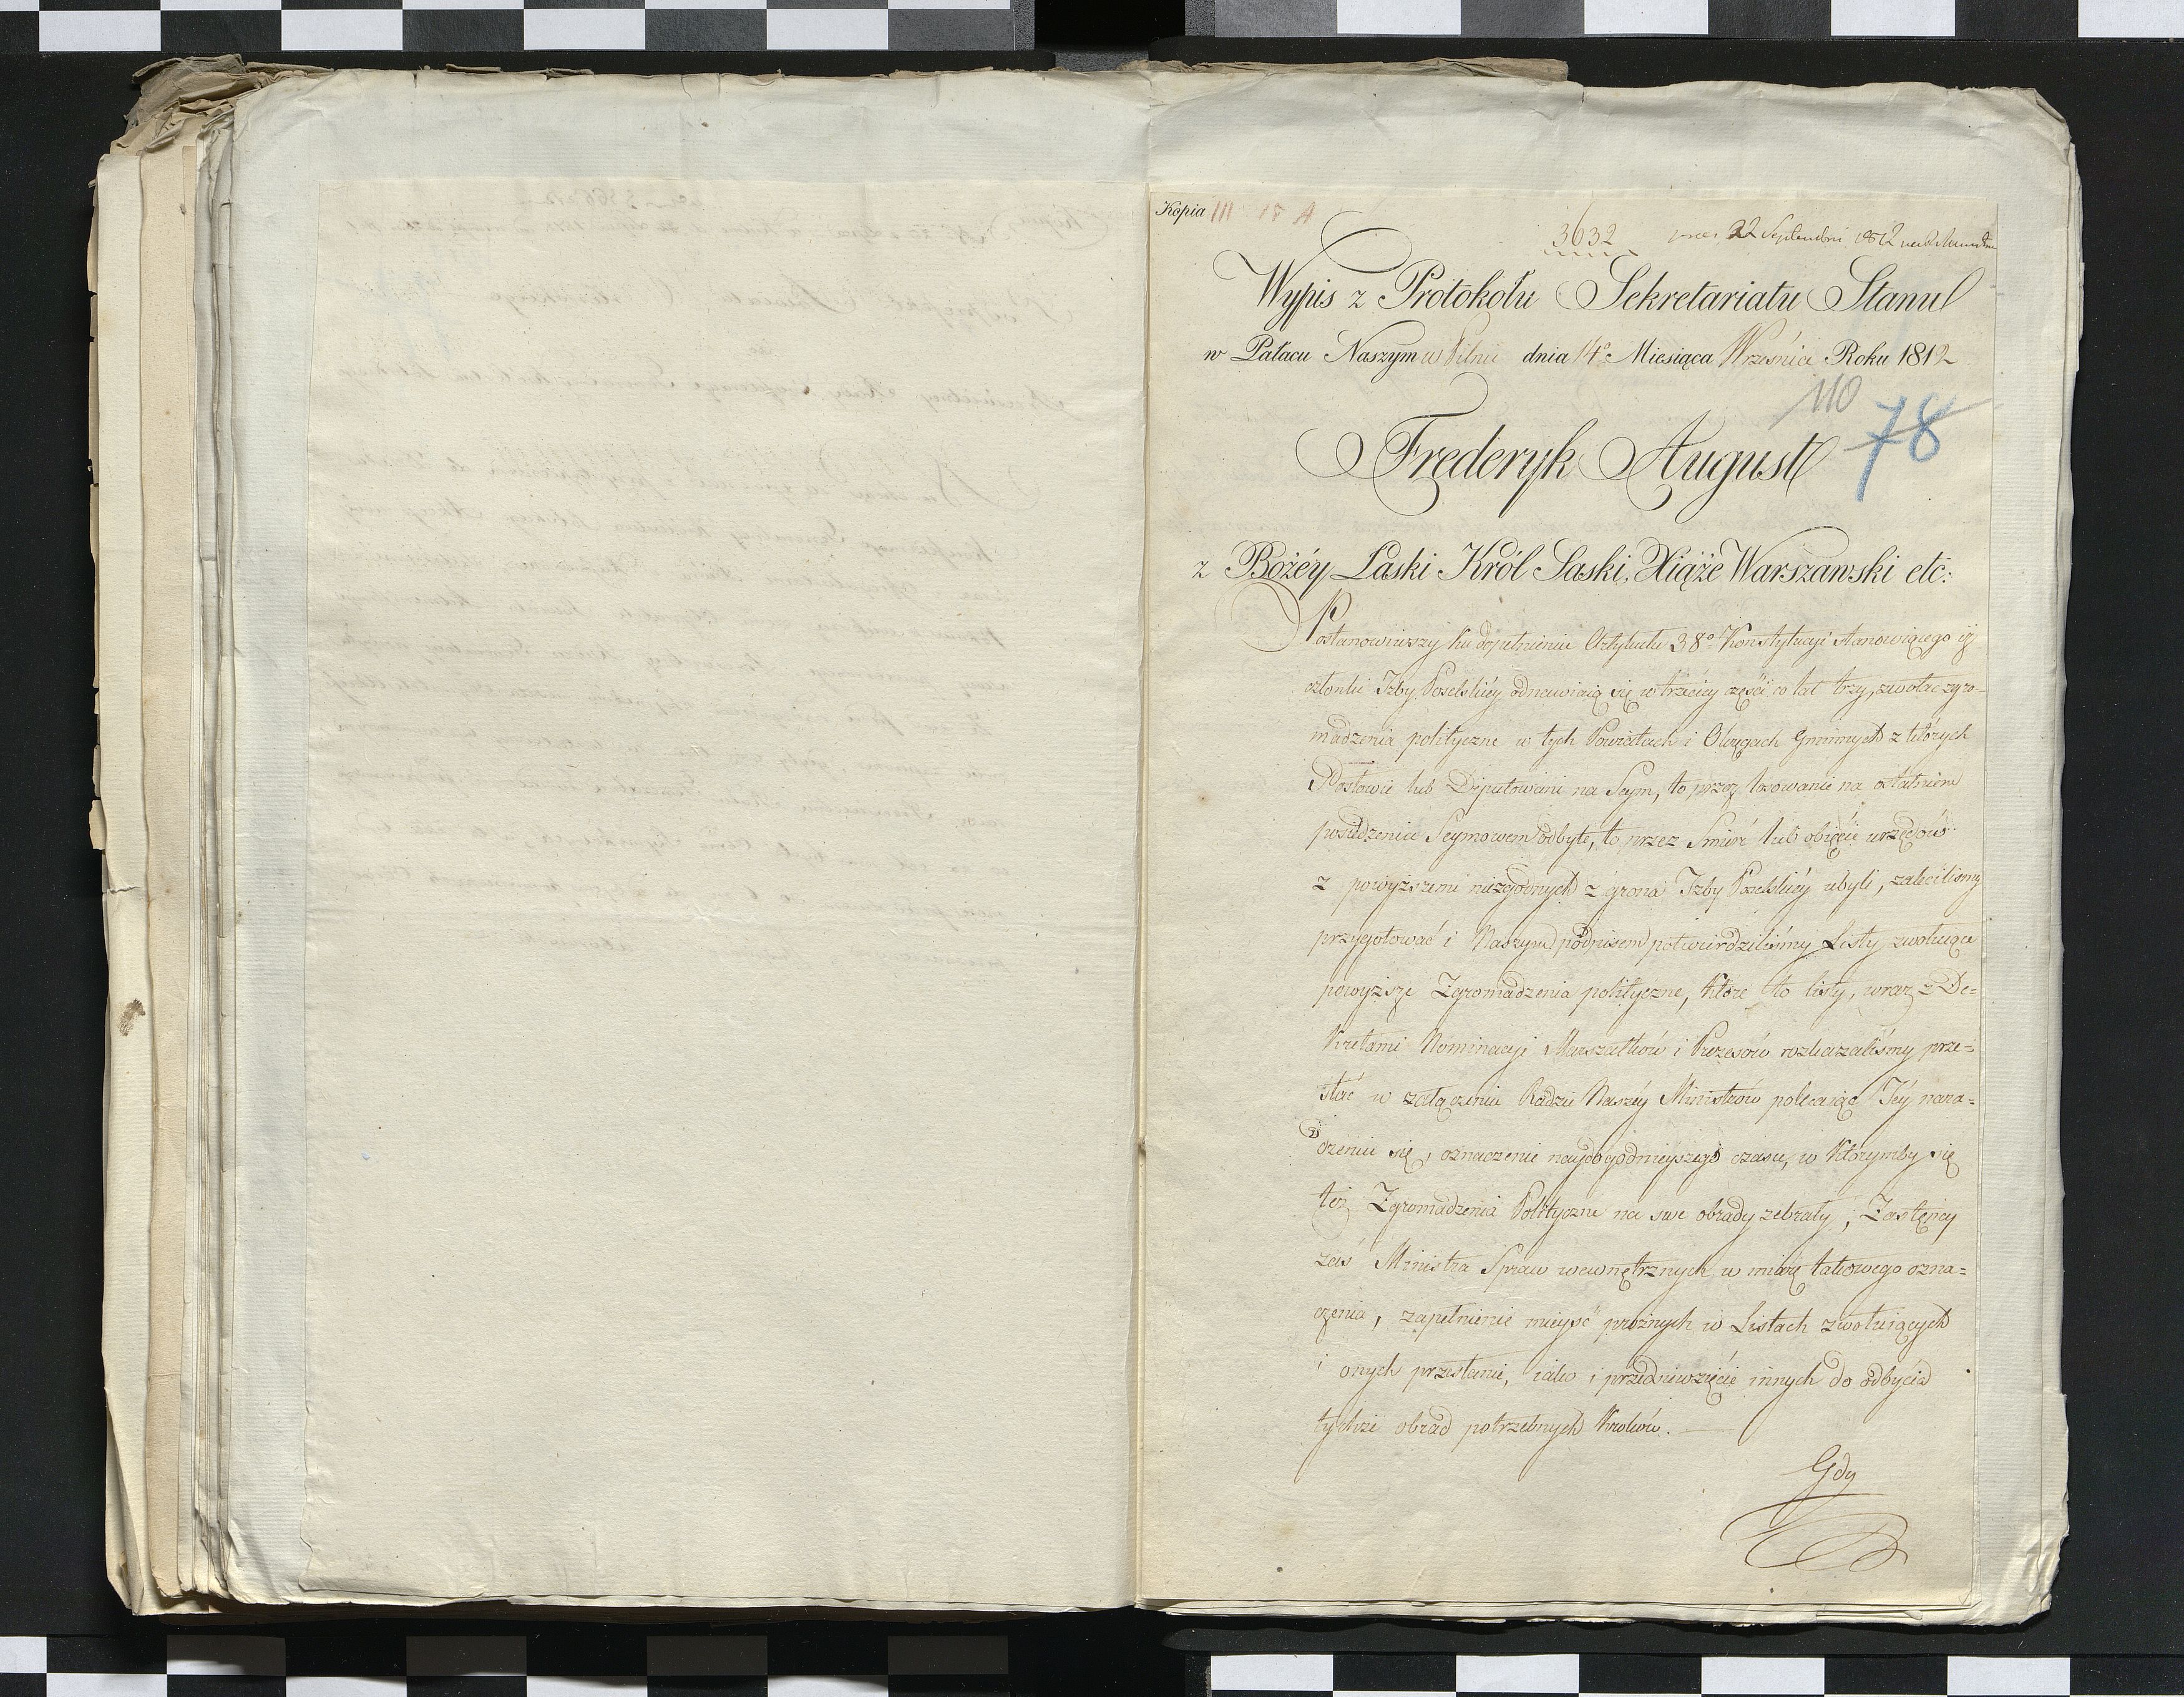 Kopia III 15 A
3632 22 Septembri 1812
Wypis z Protokołu Sekretariatu Stanu
w Pałacu Naszym w Pilnic dnia 14o Miesiąca Września Roku 1812
110
78
Frederyk August
z Bożéy Łaski Król Saski, Xiąże Warszawski etc:
Postanowiwszy ku dopełnieniu Artykułu 38o Konstytucyi stanowiącego iż
członki Izby Poselskiéy odnawiaią się w trzeciey części co lat trzy, zwołać zgro-
madzenia polityczne w tych Powiatach i Okręgach Gminnych z których
Posłowie lub Deputowani na Seym, to przez losowanie na ostatniem
posiedzeniu Seymowem odbyte, to przez Śmierć lub obięcie urzędów
z powyższemi niezgodnych z grona Izby Poselskiéy ubyli, zaleciliśmy
przygotować i Naszym podpisem potwierdziliśmy Listy zwołuiące
powyższe Zgromadzenia polityczne, które to listy, wraz z De=
kretami Nominacyi Marszałków i Prezesów rozkazaliśmy prze=
słać w załączeniu Radzie Naszéy Ministrów polecaiąc Iéy nara=
dzenie się, oznaczenie naydogodnieyszego czasu, w którymby się
też Zgromadzenia Polityczne na swe obrady zebrały; Zastępcy
zaś Ministra Spraw wewnętrznych w miarę takowego ozna=
czenia, zapełnienie mieysc próżnych w Listach zwołuiących
i onych przesłanie, iako i przedsiewzięcie innych do odbycia
tychże obrad potrzebnych kroków.
Gdy